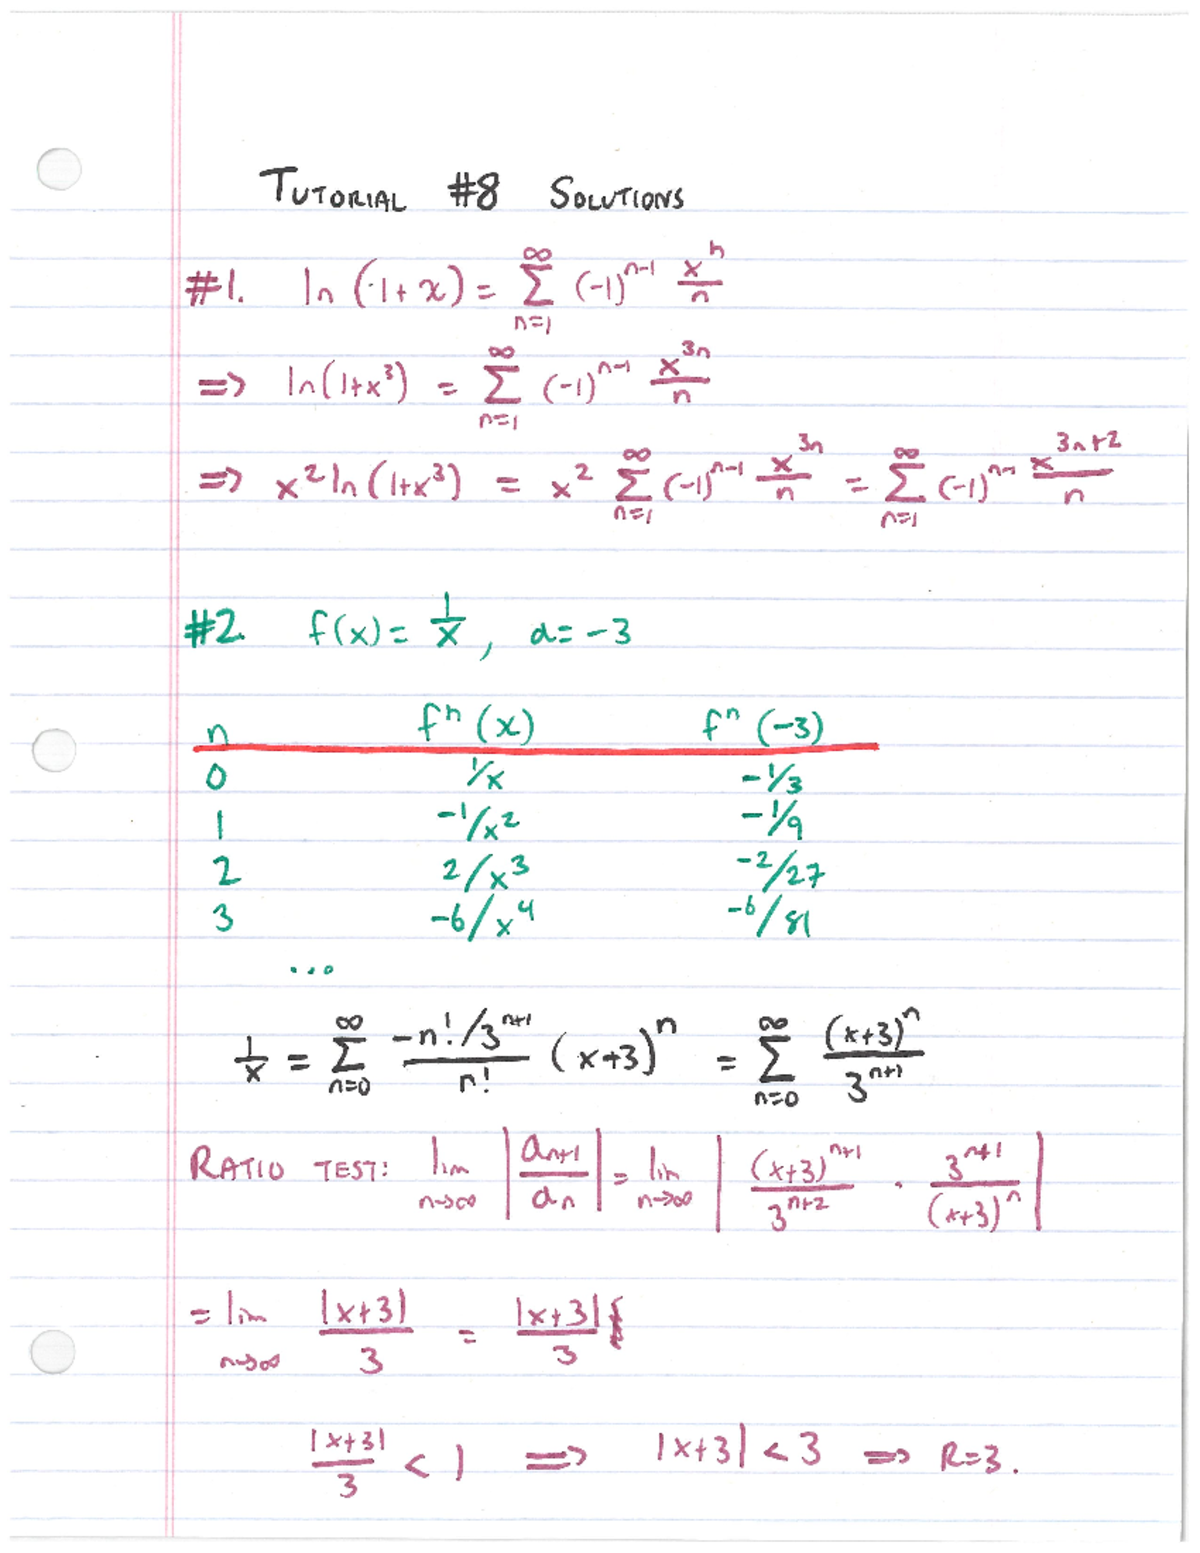 TUTORIAL #8 SOLUTIONS
#1. ln (1+x) = ∞∑n=1 (-1)^{n-1} x^n/n
=> ln(1+x^3) = ∞∑n=1 (-1)^{n-1} x^{3n}/n
=> x^2 ln(1+x^3) = x^2 ∞∑n=1 (-1)^{n-1} x^{3n}/n = ∞∑n=1 (-1)^{n-1} x^{3n+2}/n
#2. f(x) = 1/x, a = -3
n f^n (x) f^n (-3)
0 1/x -1/3
1 -1/x^2 -1/9
2 2/x^3 -2/27
3 -6/x^4 -6/81
...
1/x = ∞∑n=0 (-n!/3^{n+1})/n! (x+3)^n = ∞∑n=0 (x+3)^n/3^{n+1}
RATIO TEST: lim n→∞ |a_{n+1}/a_n| = lim n→∞ |(x+3)^{n+1}/3^{n+2} · 3^{n+1}/(x+3)^n|
= lim n→∞ |x+3|/3 = |x+3|/3
|x+3|/3 < 1 => |x+3| < 3 => R=3.